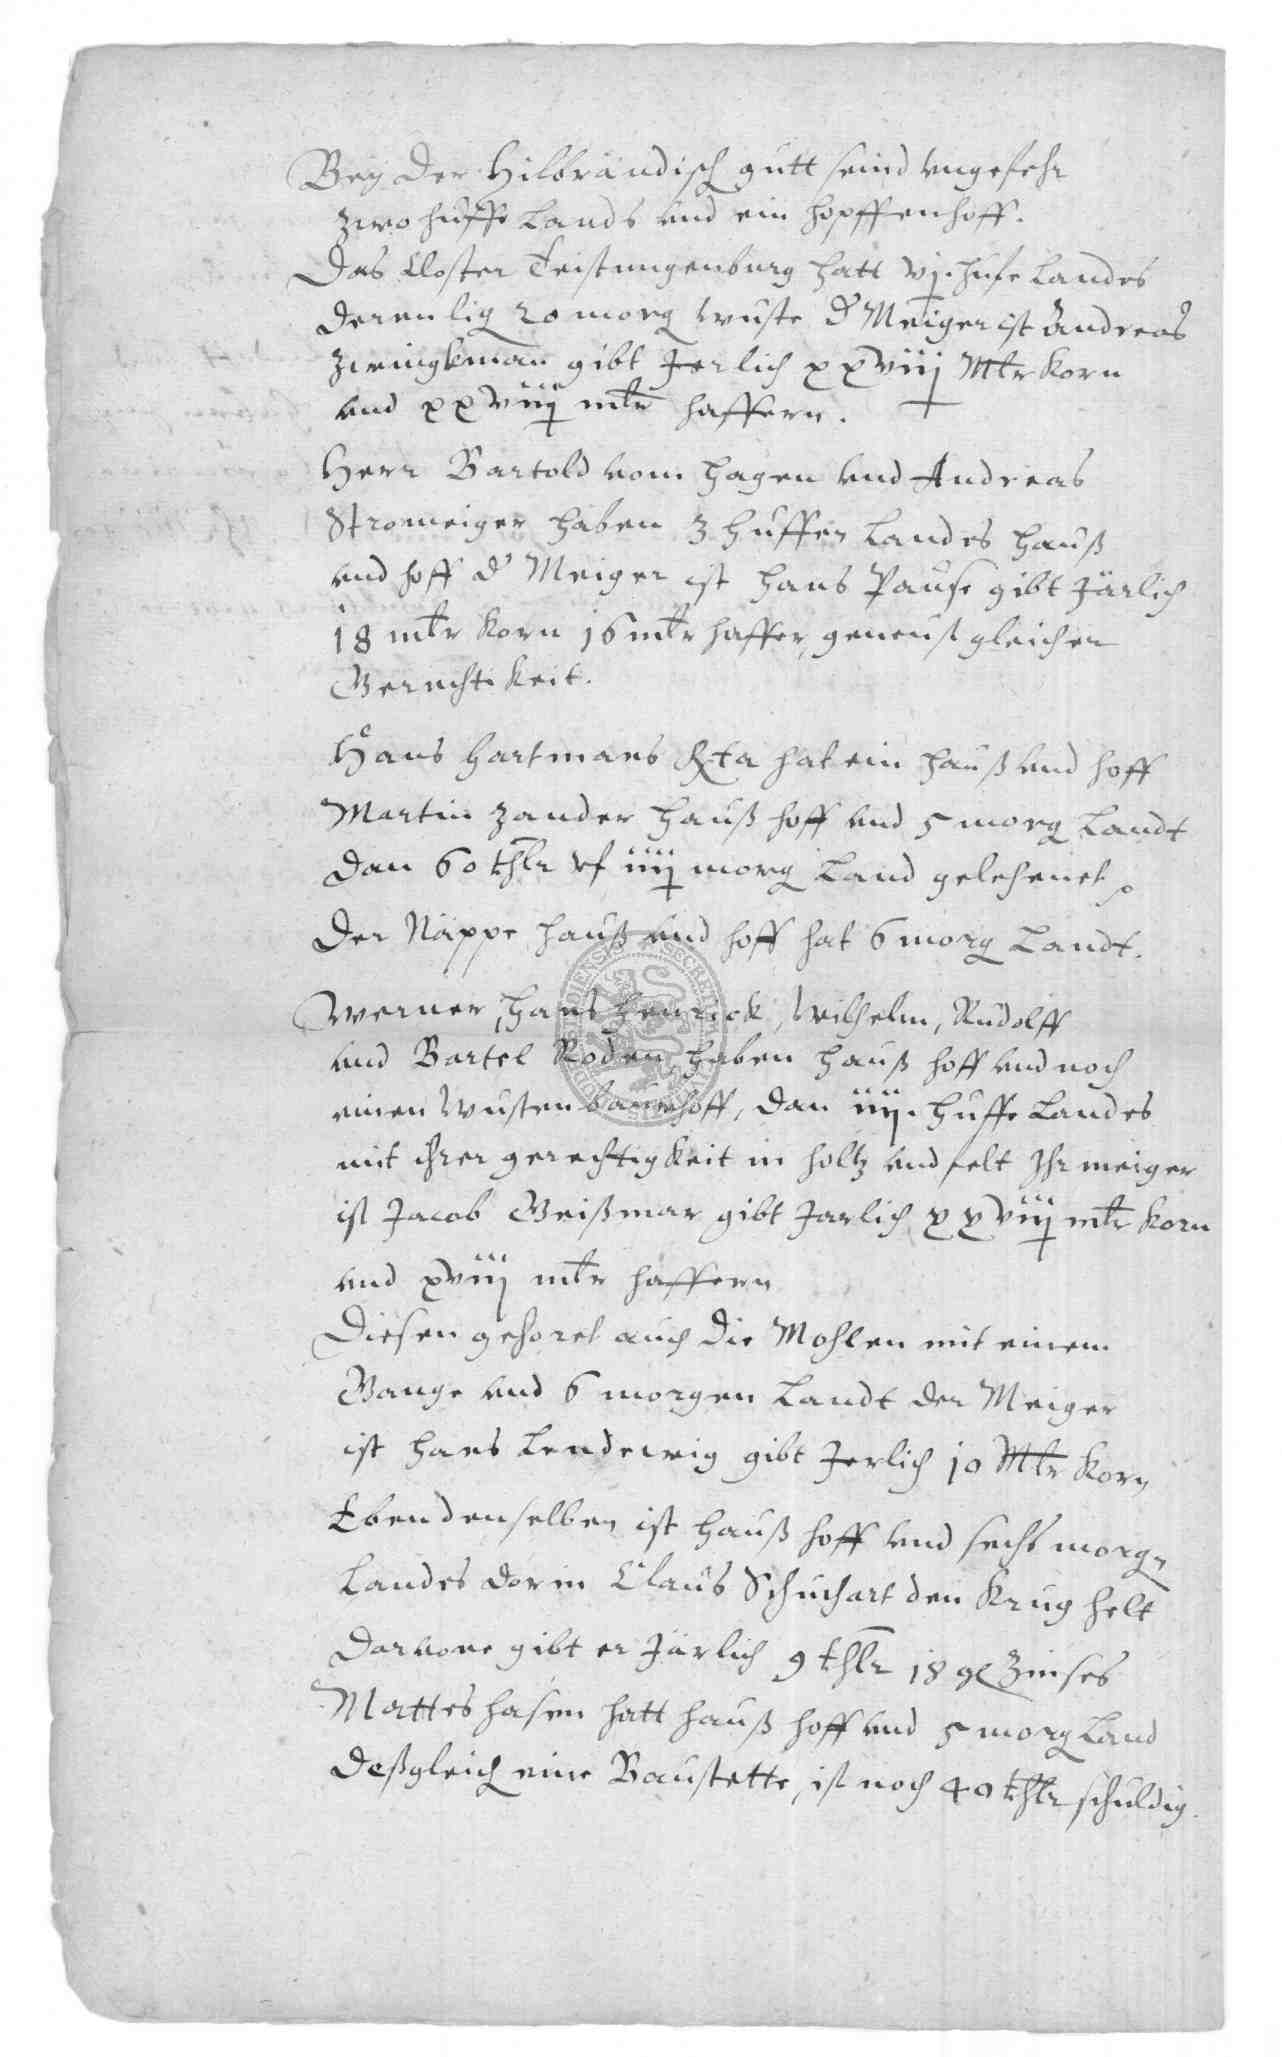 Bey der Hilbrandisch gutt seind ungefehr
zwo huffe Lands und ein hopffenhoff.
Das Closter Teistungenburg hatt vj. hufe Landes
deren lig 20 morg wuste d Meiger ist Andreas
Zwingkman gibt Jerlich xxviiij Mtr Korn
und xxviiij mtr haffern.
Herr Bartold vom Hagen und Andreas
Stromeiger haben 3 huffen Landes hauß
und hoff d Meiger ist Hans Pause gibt Järlich
18 mtr Korn 16 mtr haffer, geneust gleicher
Gerechtikeit.
Hans Hartmans hat ein hauß und hoff
Martin Zander hauß hoff und 5 morg Landt
dan 60 thlr uf iiij morg Land gelehenet
Der Nappe hauß und hoff hat 6 morg Landt.
Werner, Hans Henrick, Wilhelm, Rudolff
und Bartel Roden haben hauß hoff und noch
einen Wusten baurhoff, dan iiij. huffe Landes
mit ihrer gerechtigkeit in holtz und felt Ihr meiger
ist Jacob Geißmar gibt Jarlich xxviij mtr Korn
und xviij mtr haffern
Diesen gehoret auch die Mohlen mit einem
Gange und 6 morgen Landt der Meiger
ist Hans Lendewig gibt Jerlich 10 Mtr Korn
Ebendenselben ist hauß hoff und sechs morgn
Landes dorin Claus Schuchart den Krug helt
Darvone gibt er Järlich 9 thlr 18 gl Zinses
Mattes Hasen hatt hauß hoff und 5 morg Land
deßgleich eine Baustette, ist noch 40 thlr schuldig.